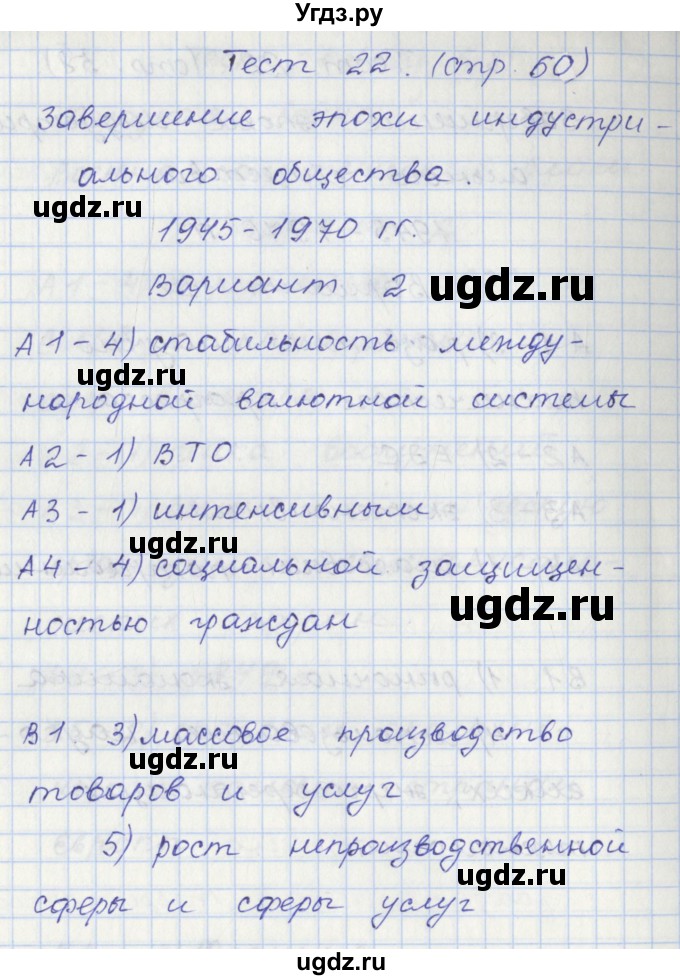 Угдз.ру
Тест 22. (стр. 60)
Завершение эпохи индустри-
ального общества.
ugdz.ru
1945-1970 гг.
Вариант 2 ugdz.ru
А1-4) стабильность между-
ugdz.ru
народной валютной системы
А2-1) ВТО
А3-1) интенсивным
ugdz.ru
А4-4) социальной защищен-
ugdz.ru
ностью граждан
В1 3) массовое производство
ugdz.ru
товаров и услуг
5) рост непроизводственной
ugdz.ru
сферы и сферы услуг
Угдз.ру